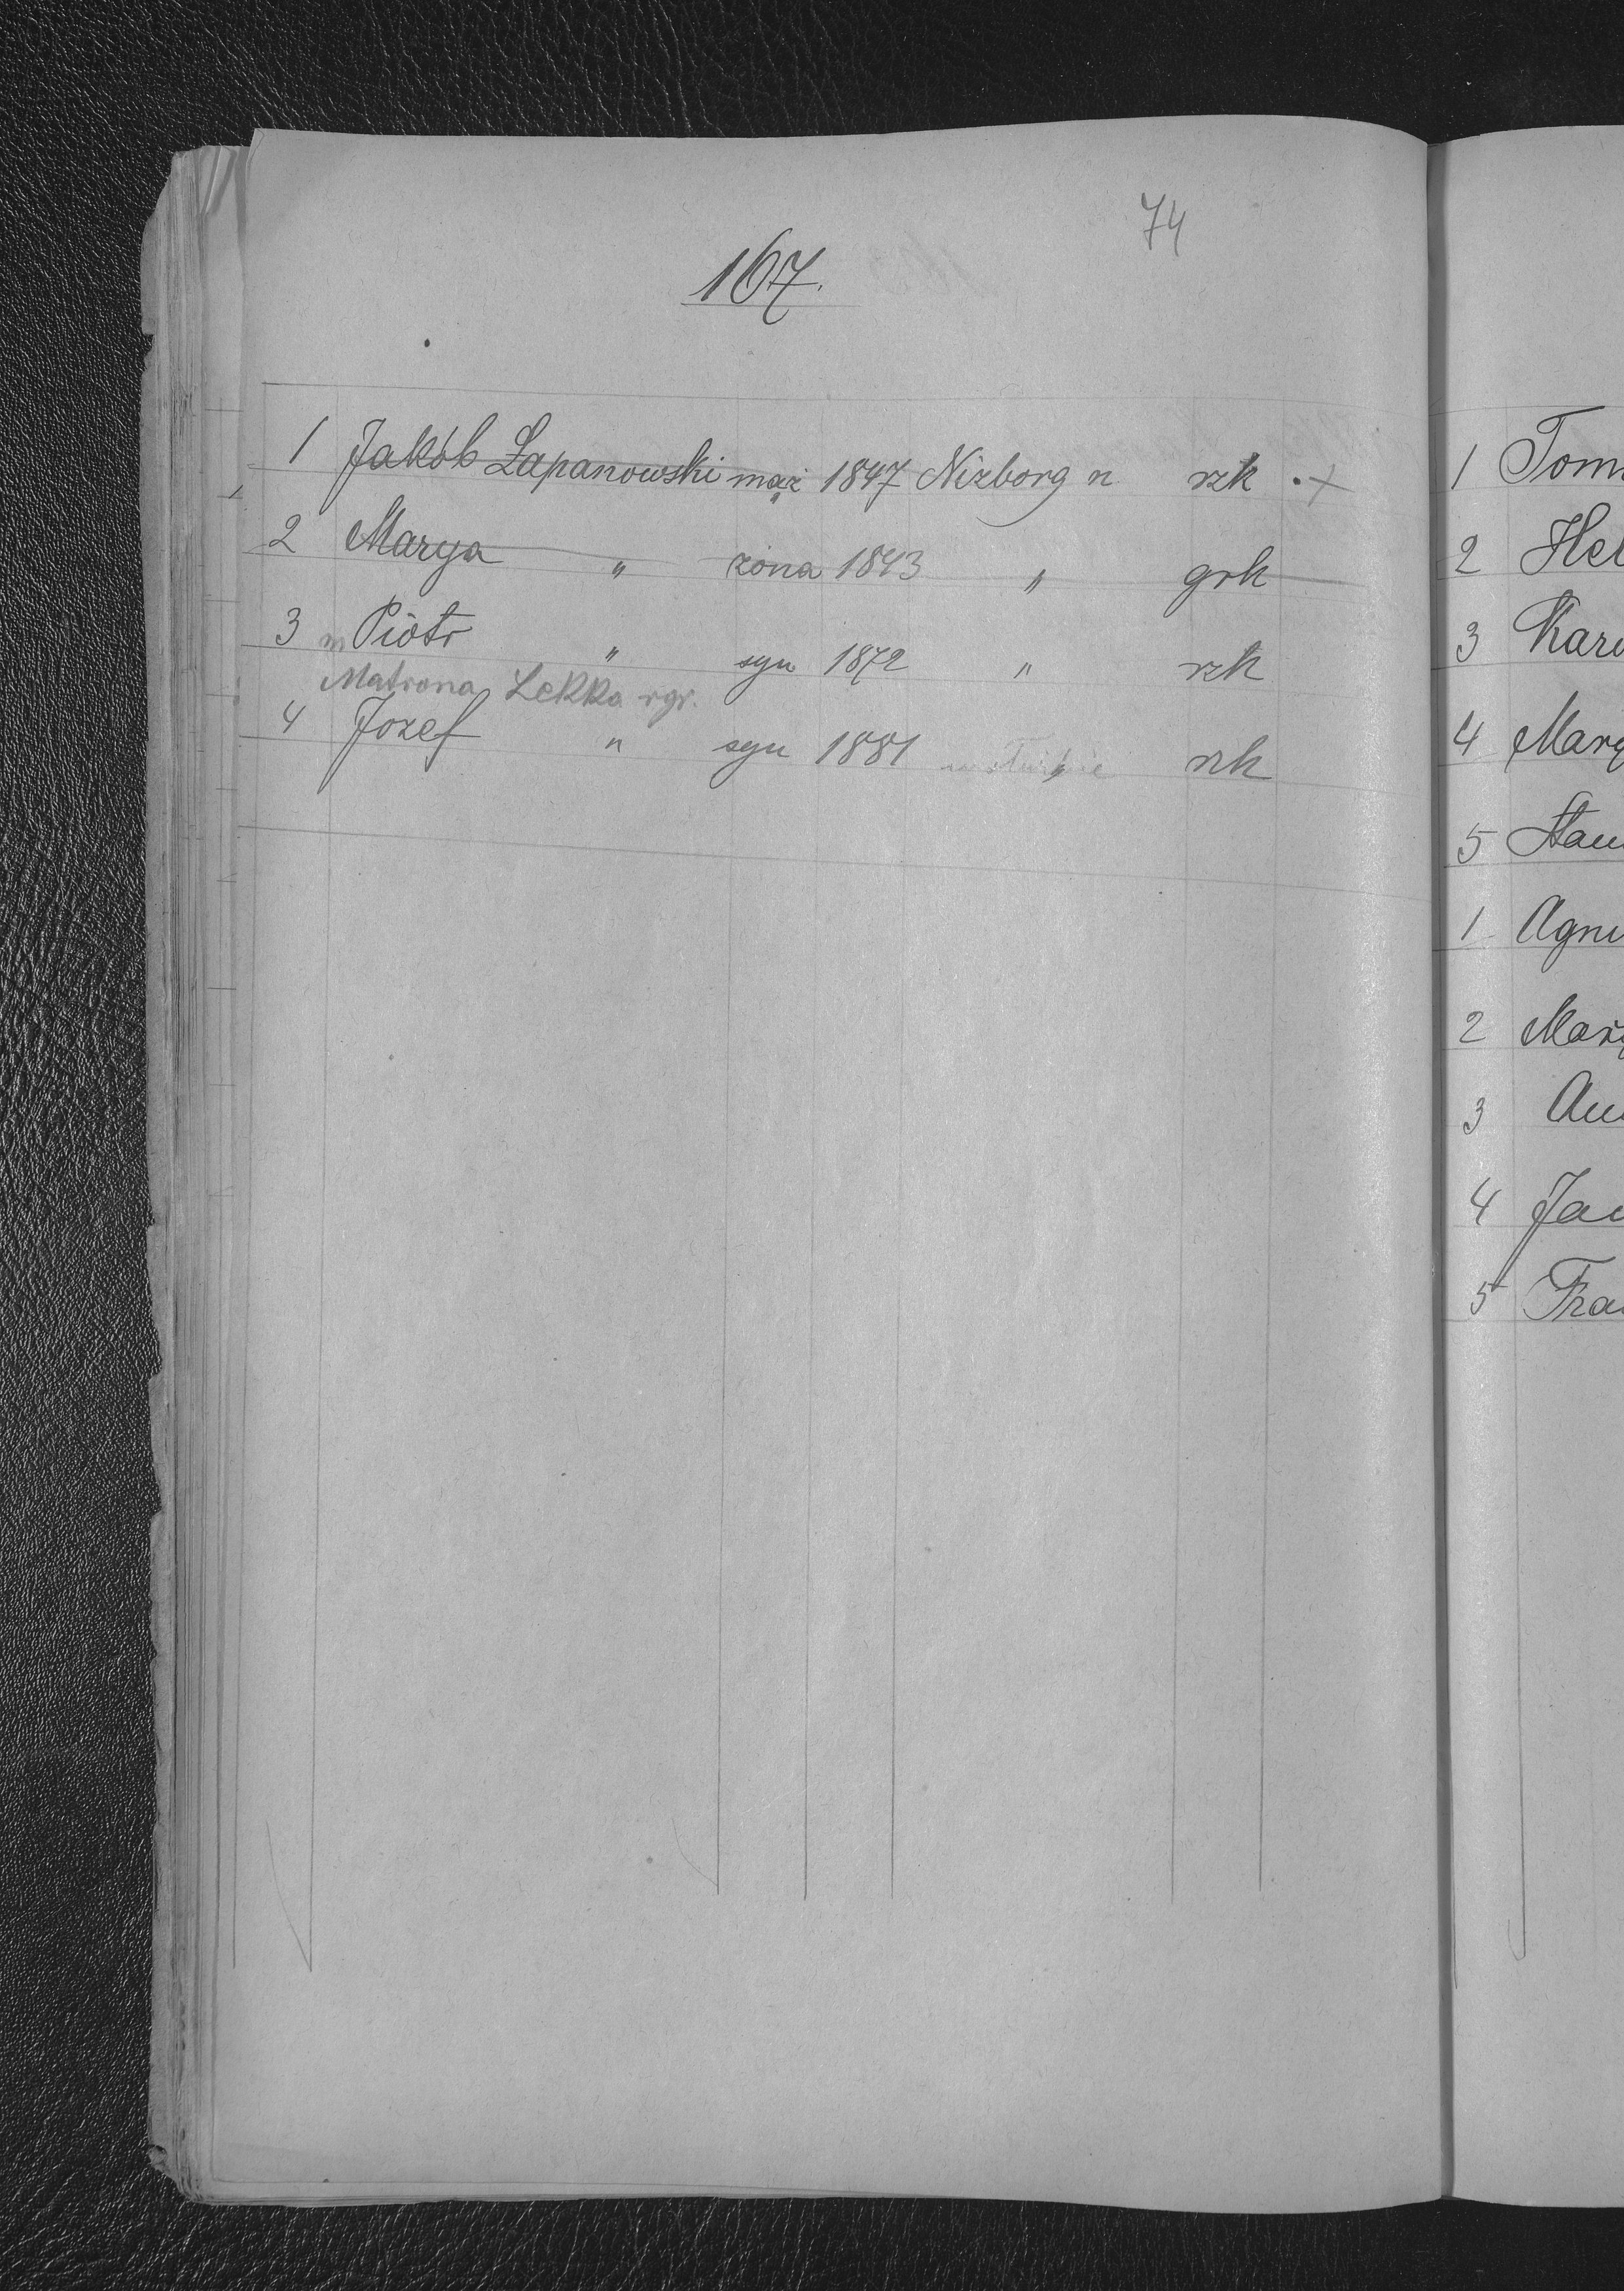 74
167.
1 Jakób Łapanowski mąż 1847 Niżborg n rzk . +
2 Marya " żona 1843 " grk
3 m Piotr " syn 1872 " rzk
Matrona Lekka rgr.
4 Jozef " syn 1881 " rzk
1 Tom
2 Hel
3 Karo
4 Mary
5 Stan
1 Agni
2 Mary
3 An
4 Jan
5 Fra